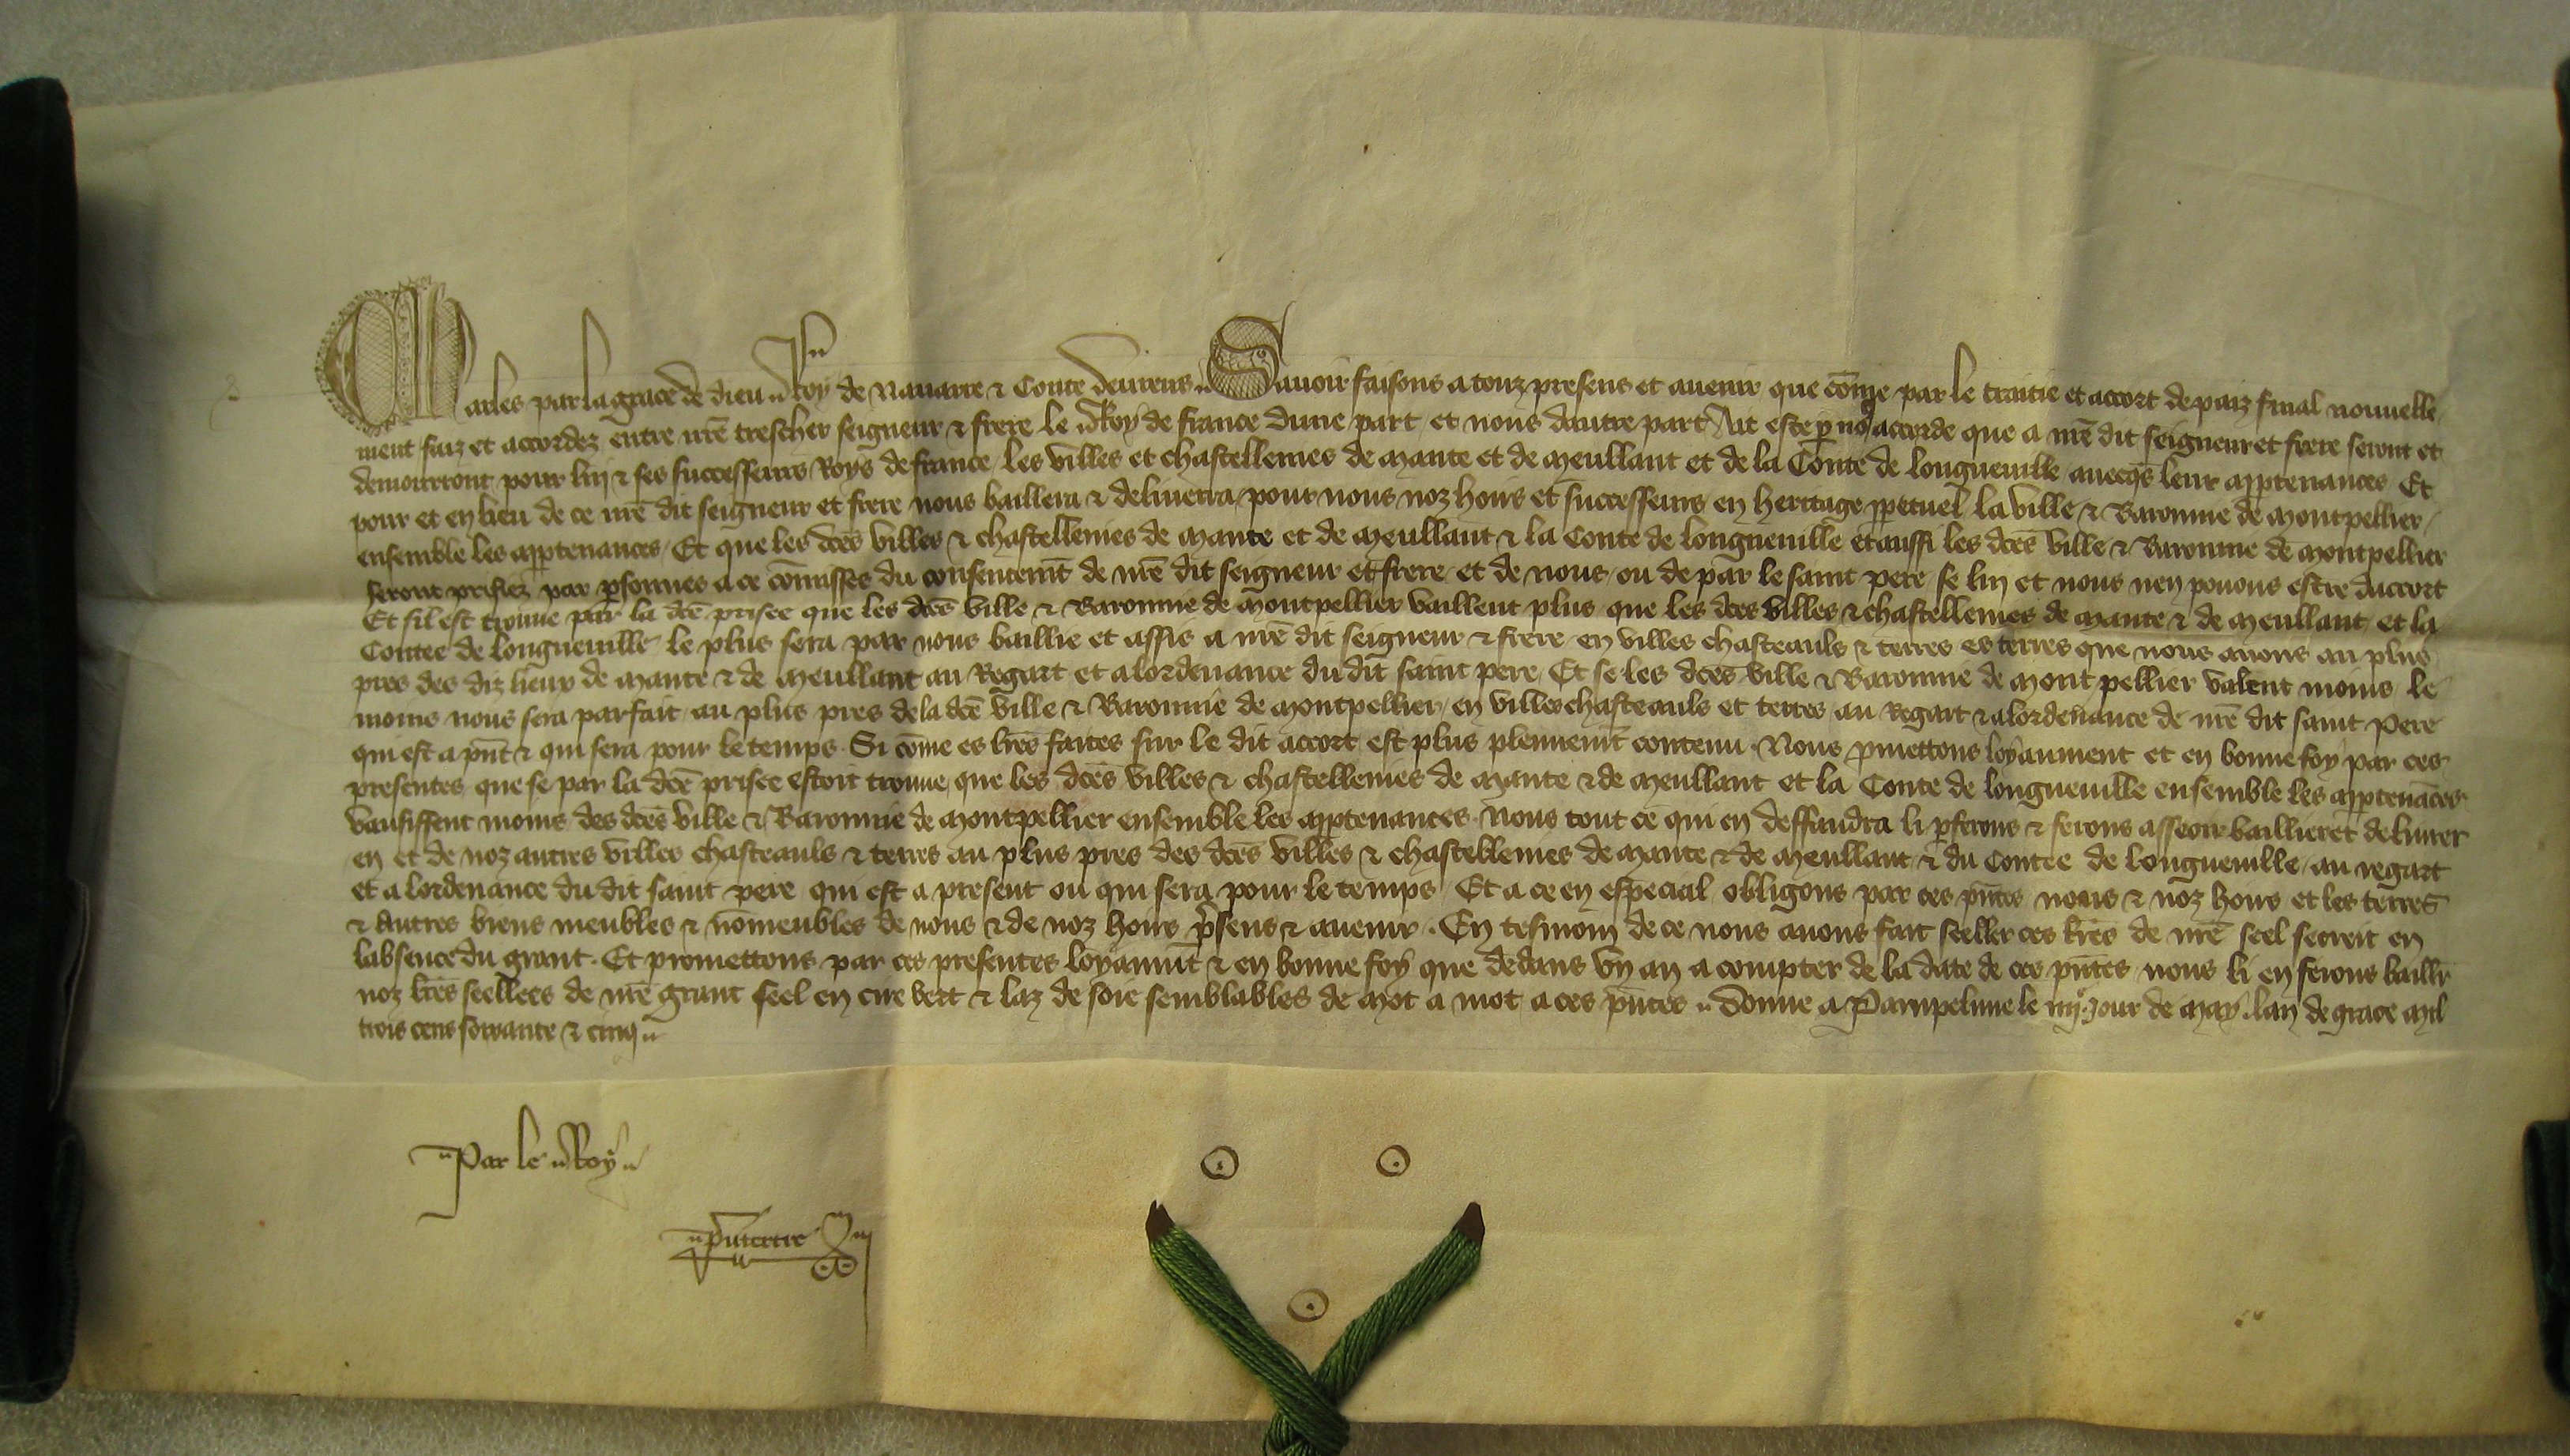 Charles par la grace de dieu Roy de Navarre & Conte devreus. Savoir faisons a touz presens et avenir que cōme par le traitie et accort de paiz final nouvelle
ment faiz et accordez entre nrē trescher seigneur & frere le Roy de france dune part et nous dautre part Ait este p nous accorde que a nrē dit seigneur et frere seront et
demourront pour luy & ses successeurs Roys de france les villes et chastellenies de Mante et de Meullant et de la Conte de longueville avecqs leur apptenances Et
pour et en lieu de ce nrē dit seigneur et frere nous baillera & delivrera pour nous noz hoirs et successeurs en heritage ppetuel la ville & Baronnie de Montpellier
ensemble les apptenances. Et que les dcēs villes & chastellenies de Mante et de Meullant & la Conte de longueville et aussi les dcēs ville & Baronnie de Montpellier
seront prisiez par psonnes a ce cōmisses du consentemt de nrē dit seigneur et frere et de nous ou de par le saint pere se luy et nous nen povons estre daccort
Et sil est trouve par la dcē prisee que les dcēs ville & Baronnie de Montpellier vaillent plus que les dcēs villes & chastellenies de Mante & de Meullant et la
Contee de longueville le plus sera par nous baillie et assis a nrē dit seigneur & frere en villes chasteauls & terres es terres que nous avons au plus
pres des diz lieux de Mante & de Meullant au Regart et a lordenance du dit saint pere. Et se les dcēs ville & Baronnie de Mont pellier valent moins le
moins nous sera parfait au plus pres de la dcē ville & Baronnie de Montpellier en villes chasteauls et terres au Regart & a lordenance de nrē dit saint Pere
qui est a pnt & qui sera pour le temps. Si cōme es lrēs faites sur le dit accort est plus plennemt contenu. Nous pmettons loyaument et en bonne foy par ces
presentes que se par la dcē prisee estoit trouve que les dcēs villes & chastellenies de Mante & de Meullant et la Conte de longueville ensemble les apptenāces
vausissent moins des dcēs ville & Baronnie de Montpellier ensemble les apptenances. Nous tout ce qui en deffaudra li pferons & ferons asseoir baillier et delivrer
en et de noz autres villes chasteauls & terres au plus pres des dcēs villes & chastellenies de Mante & de Meullant & du Contee de longueville au regart
et a lordenance du dit saint pere qui est a present ou qui sera pour le temps Et a ce en especial obligons par ces pntes nous & noz hoirs et les terres
& autres biens meubles & nōmeubles de nous & de noz hoirs psens & avenir. En tesmoin de ce nous avons fait seeller ces lrēs de nrē seel secreit en
labsence du grant. Et promettons par ces presentes loyaumt & en bonne foy que dedans un an a compter de la date de ces pntes nous li en ferons baillr
noz lrēs seellees de nrē grant seel en cire vert & laz de soie semblables de mot a mot a ces pntes. Donne a Pampelune le iiij jour de May lan de grace Mil
trois cens soixante & cinq
Par le Roy